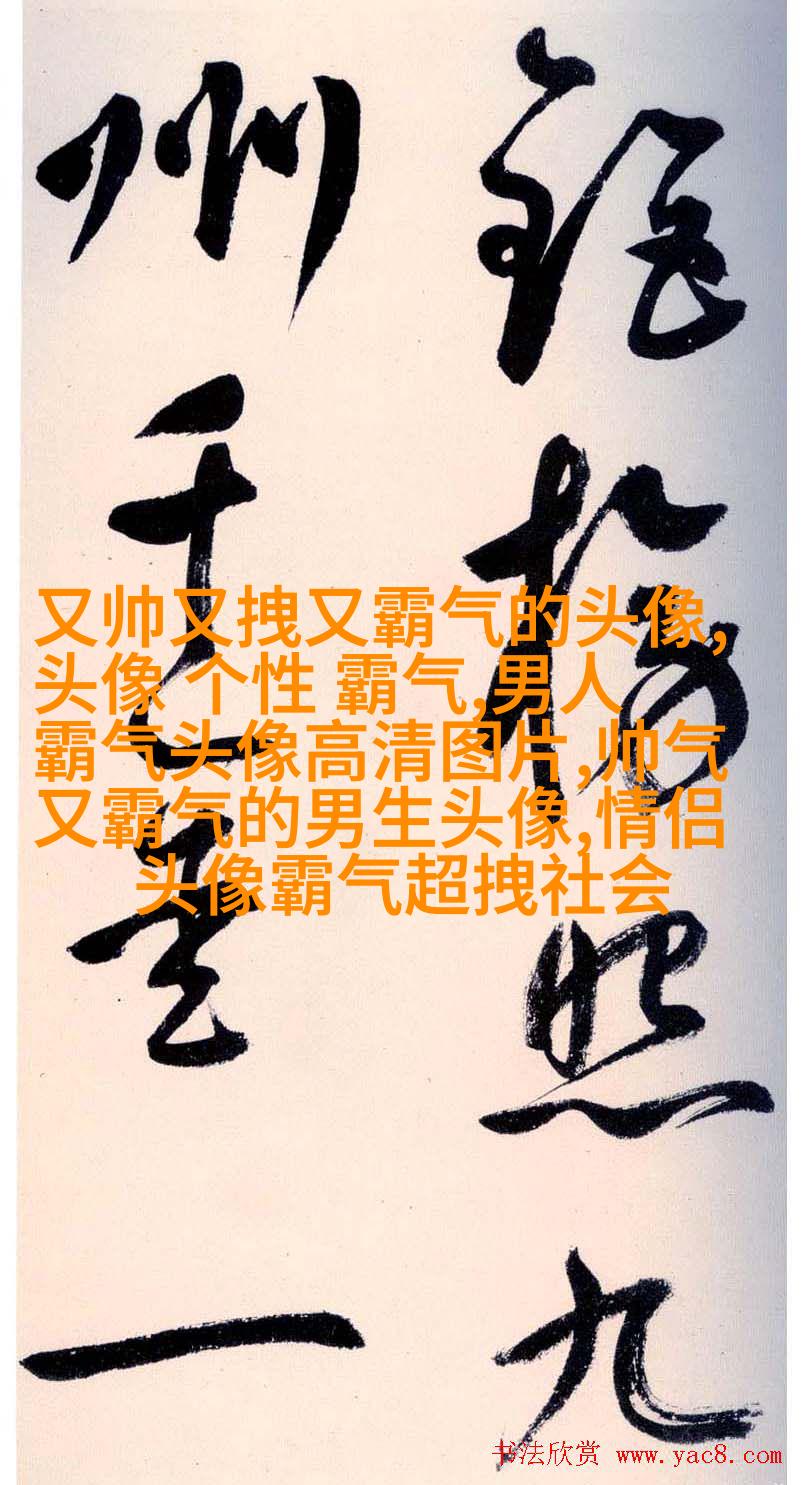 照九
州千一
又帅又拽又霸气的头像,
头像 个性 霸气,男人
霸气头像高清图片,帅气
又霸气的男生头像,情侣
头像霸气超拽社会
书法欣赏 www.yac8.com